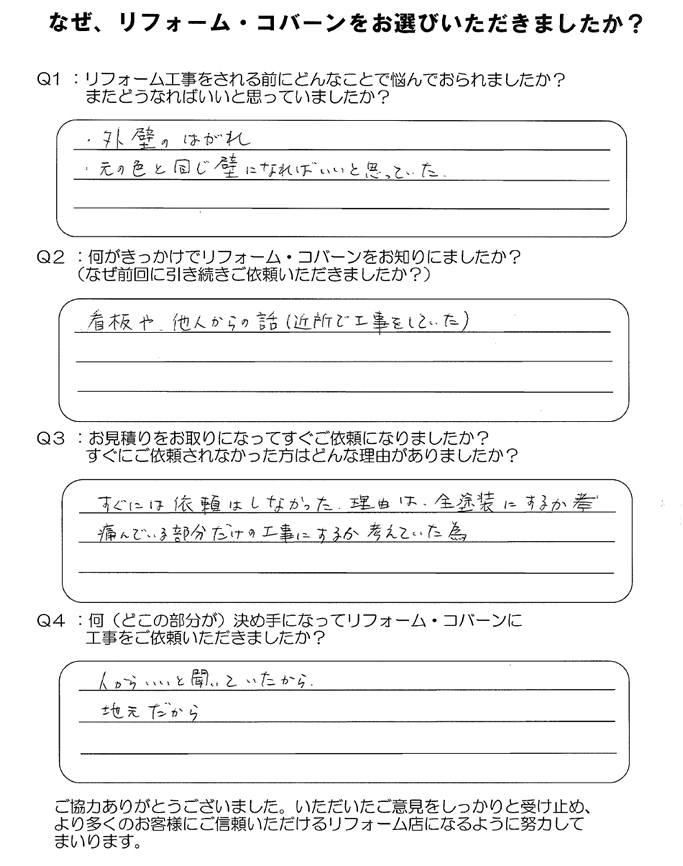 なぜ、リフォーム・コバーンをお選びいただきましたか？
Q1 ：リフォーム工事をされる前にどんなことで悩んでおられましたか？
またどうなればいいと思っていましたか？
・外壁のはがれ
・元の色と同じ壁になればいいと思っていた.
Q2 ：何がきっかけでリフォーム・コバーンをお知りにましたか？
（なぜ前回に引き続きご依頼いただきましたか？）
看板や、他人からの話(近所で工事をしていた)
Q3 ：お見積りをお取りになってすぐご依頼になりましたか？
すぐにご依頼されなかった方はどんな理由がありましたか？
すぐには依頼はしなかった. 理由は、全塗装にするか
痛んでいる部分だけの工事にするか考えていた為
Q4 ：何（どこの部分が）決め手になってリフォーム・コバーンに
工事をご依頼いただきましたか？
人からいいと聞いていたから.
地元だから
ご協力ありがとうございました。いただいたご意見をしっかりと受け止め、
より多くのお客様にご信頼いただけるリフォーム店になるように努力して
まいります。